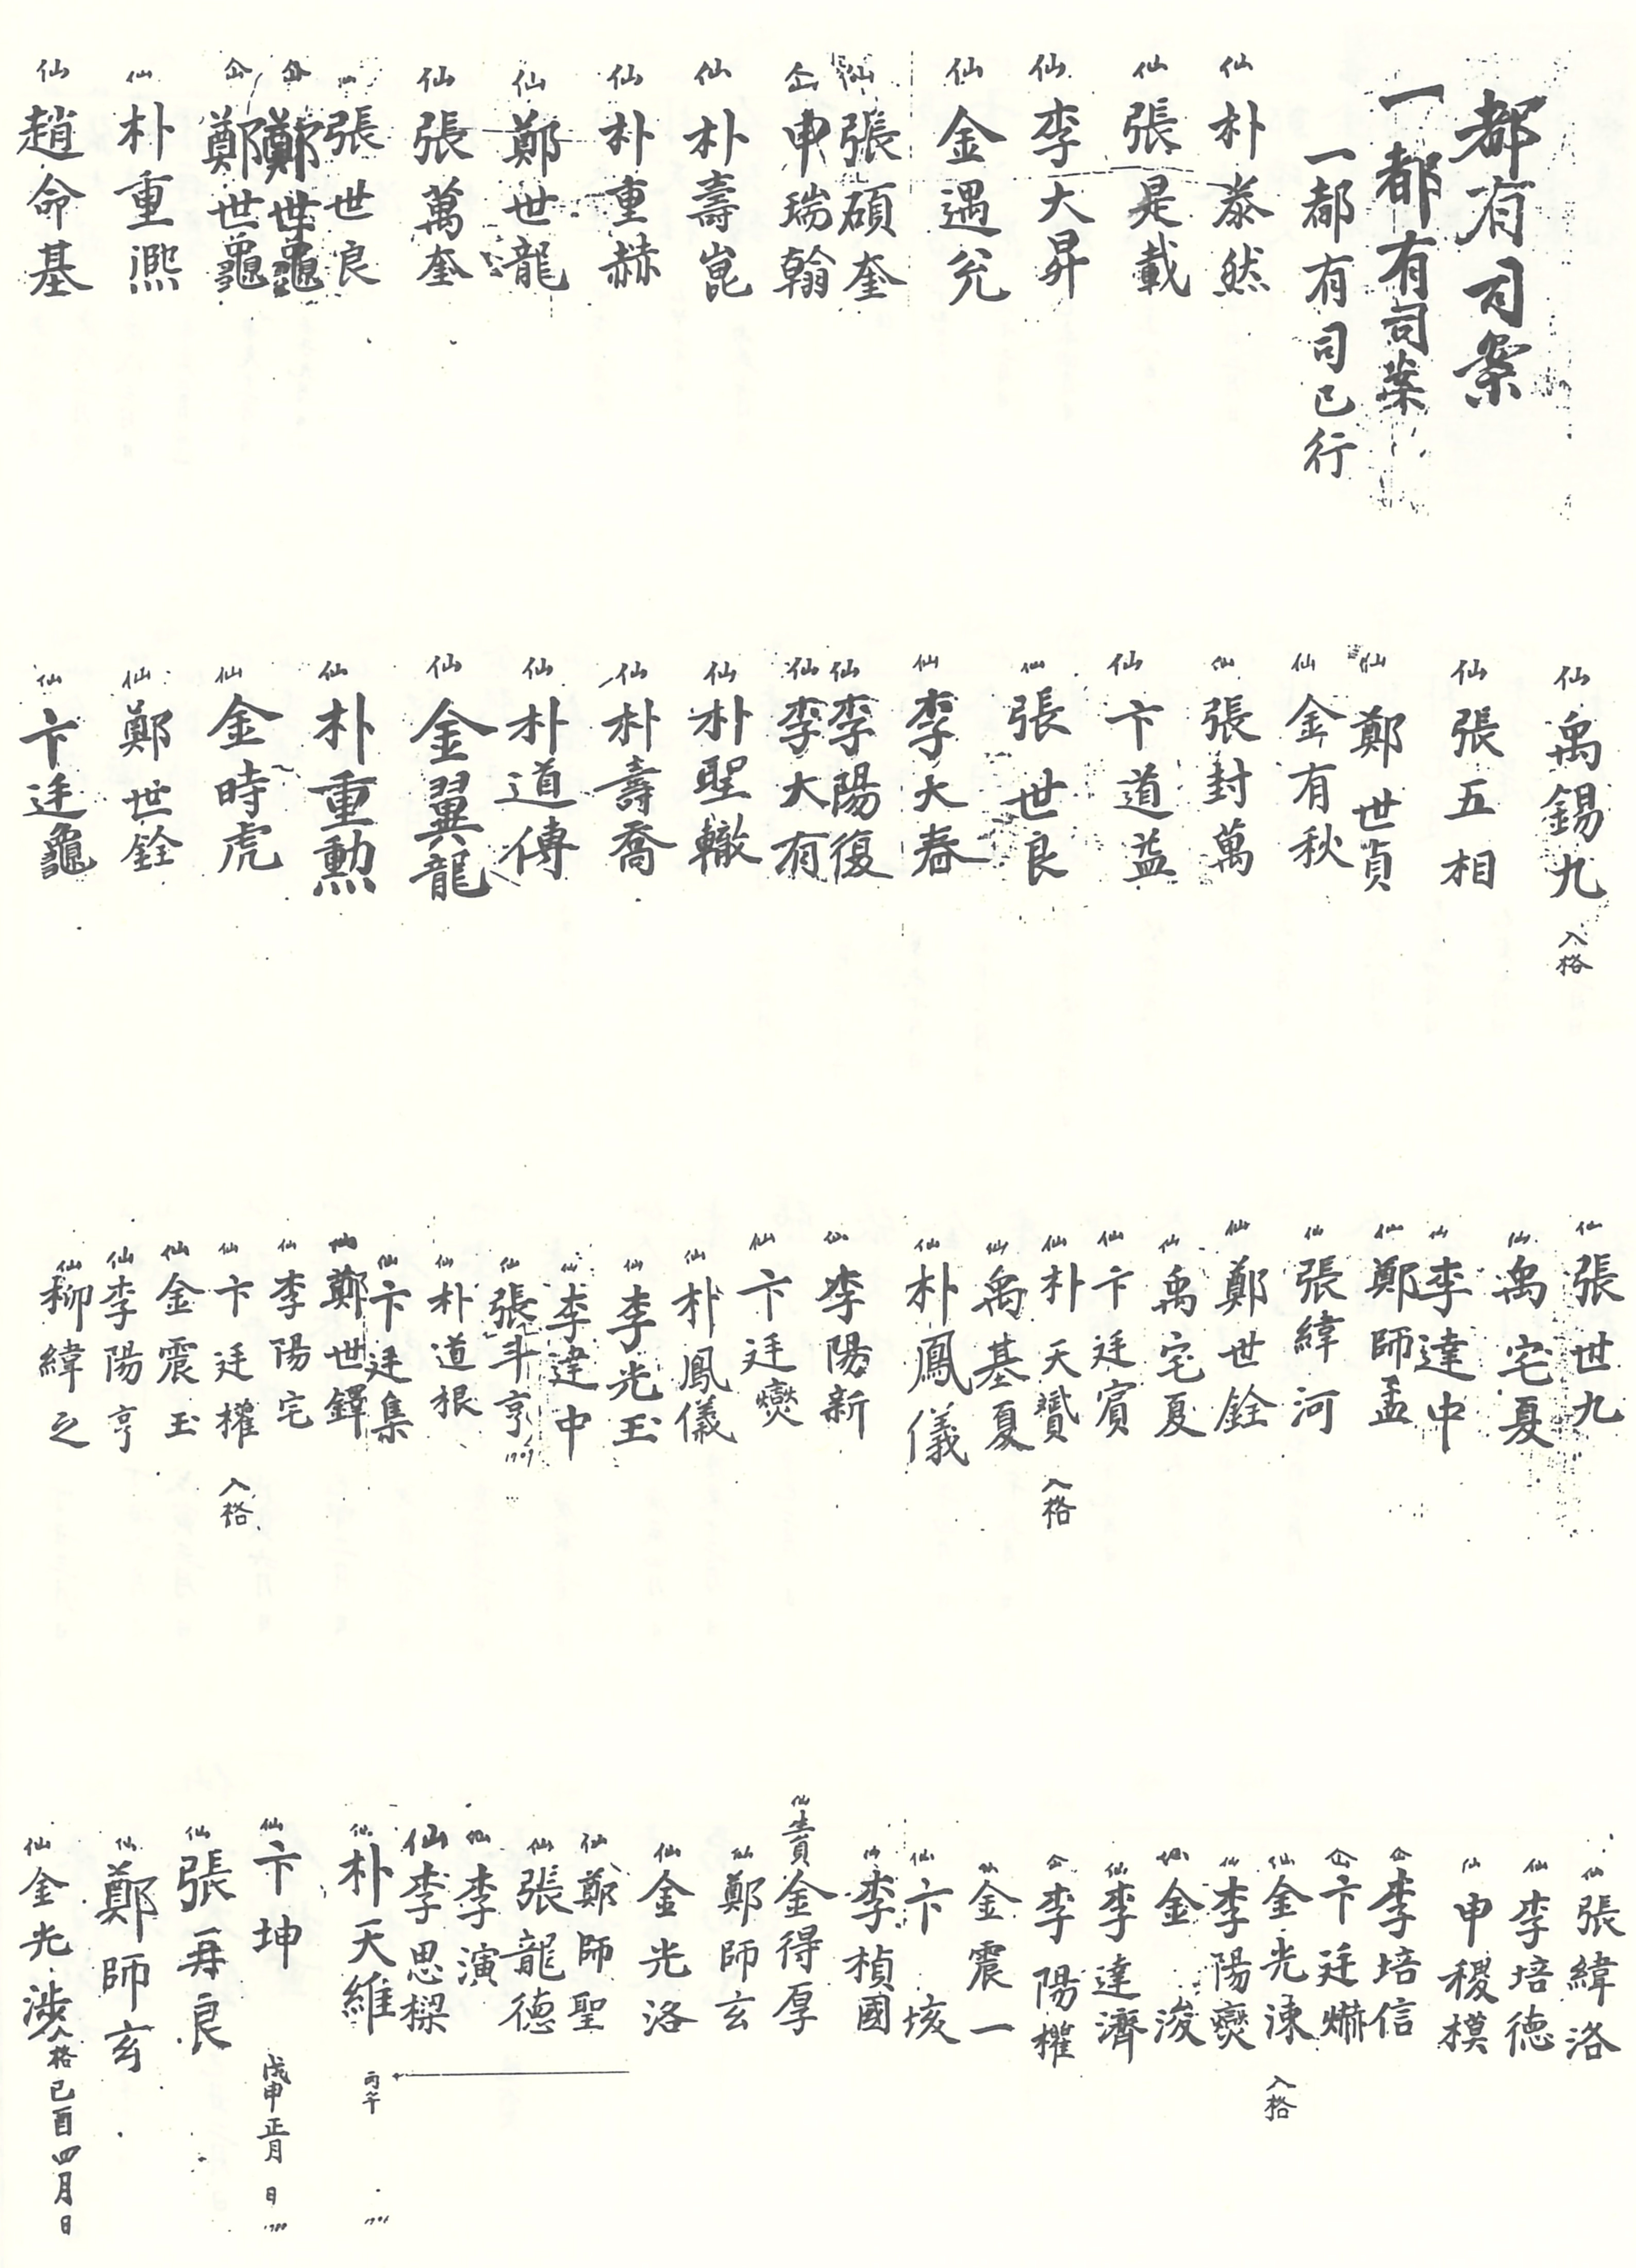 都有司案
一都有司案
一都有司已行
仙 朴泰然
仙 張是載
仙 李大昇
仙 金遇兊
仙 張碩奎
仙 申瑞翰
仙 朴壽崑
仙 朴重赫
仙 鄭世龍
仙 張萬奎
仙 張世良
仙 鄭世龜
仙 鄭世龜
仙 朴重熙
仙 趙命基
仙 禹錫九 入格
仙 張五相
仙 鄭世貞
仙 金有秋
仙 張封萬
仙 卞道益
仙 張世良
仙 李大春
仙 李陽復
仙 李大有
仙 朴聖轍
仙 朴壽喬
仙 朴道傳
仙 金翼龍
仙 朴重勳
仙 金時虎
仙 鄭世銓
仙 卞廷龜
仙 張世九
仙 禹宅夏
仙 李達中
仙 鄭師孟
仙 張緯河
仙 鄭世銓
仙 禹宅夏
仙 卞廷賓
仙 朴天贇 入格
仙 禹基夏
仙 朴鳳儀
仙 李陽新
仙 卞廷爕
仙 朴鳳儀
仙 李光玉
仙 李達中
仙 張斗亨
仙 朴道根
仙 卞廷集
仙 鄭世鐸
仙 李陽宅
仙 卞廷權 入格
仙 金震玉
仙 李陽亨
仙 柳緯之
仙 張緯洛
仙 李培德
仙 申稷模
仙 李培信
仙 卞廷爀
仙 金光涑 入格
仙 李陽爕
仙 金浚
仙 李達濟
仙 李陽權
仙 金震一
仙 卞垓
仙 李楨國
仙 生員 金得厚
仙 鄭師玄
仙 金光洛
仙 鄭師聖
仙 張龍德
仙 李演
仙 李思樑
仙 朴天維 丙午 1786
仙 卞坤 戊申正月 日 1788
仙 張再良
仙 鄭師玄
仙 金光涉 入格 己酉四月日